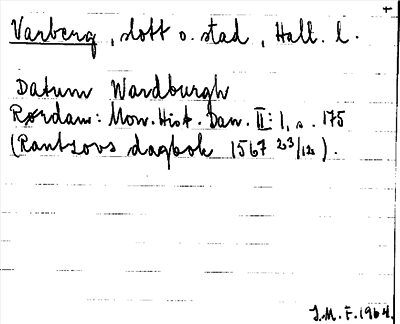 Varberg, slott o. stad, Hall. l.
Datum Wardburgh
Rørdam: Mon. Hist. Dan. II: 1, s. 175
(Rantzovs dagbok 1567 23/12).
J.M.F. 1964.